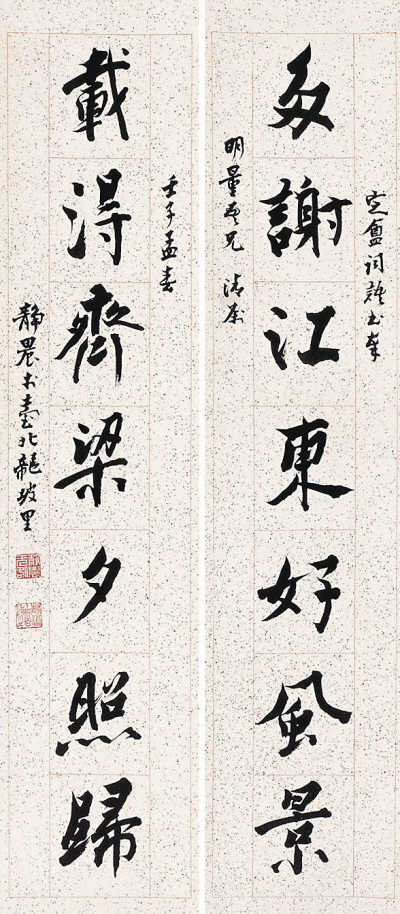 定盦詞語書奉
多謝江東好風景
明量吾兄 清屬
壬子孟春
載得齊梁夕照歸
靜農於臺北龍坡里